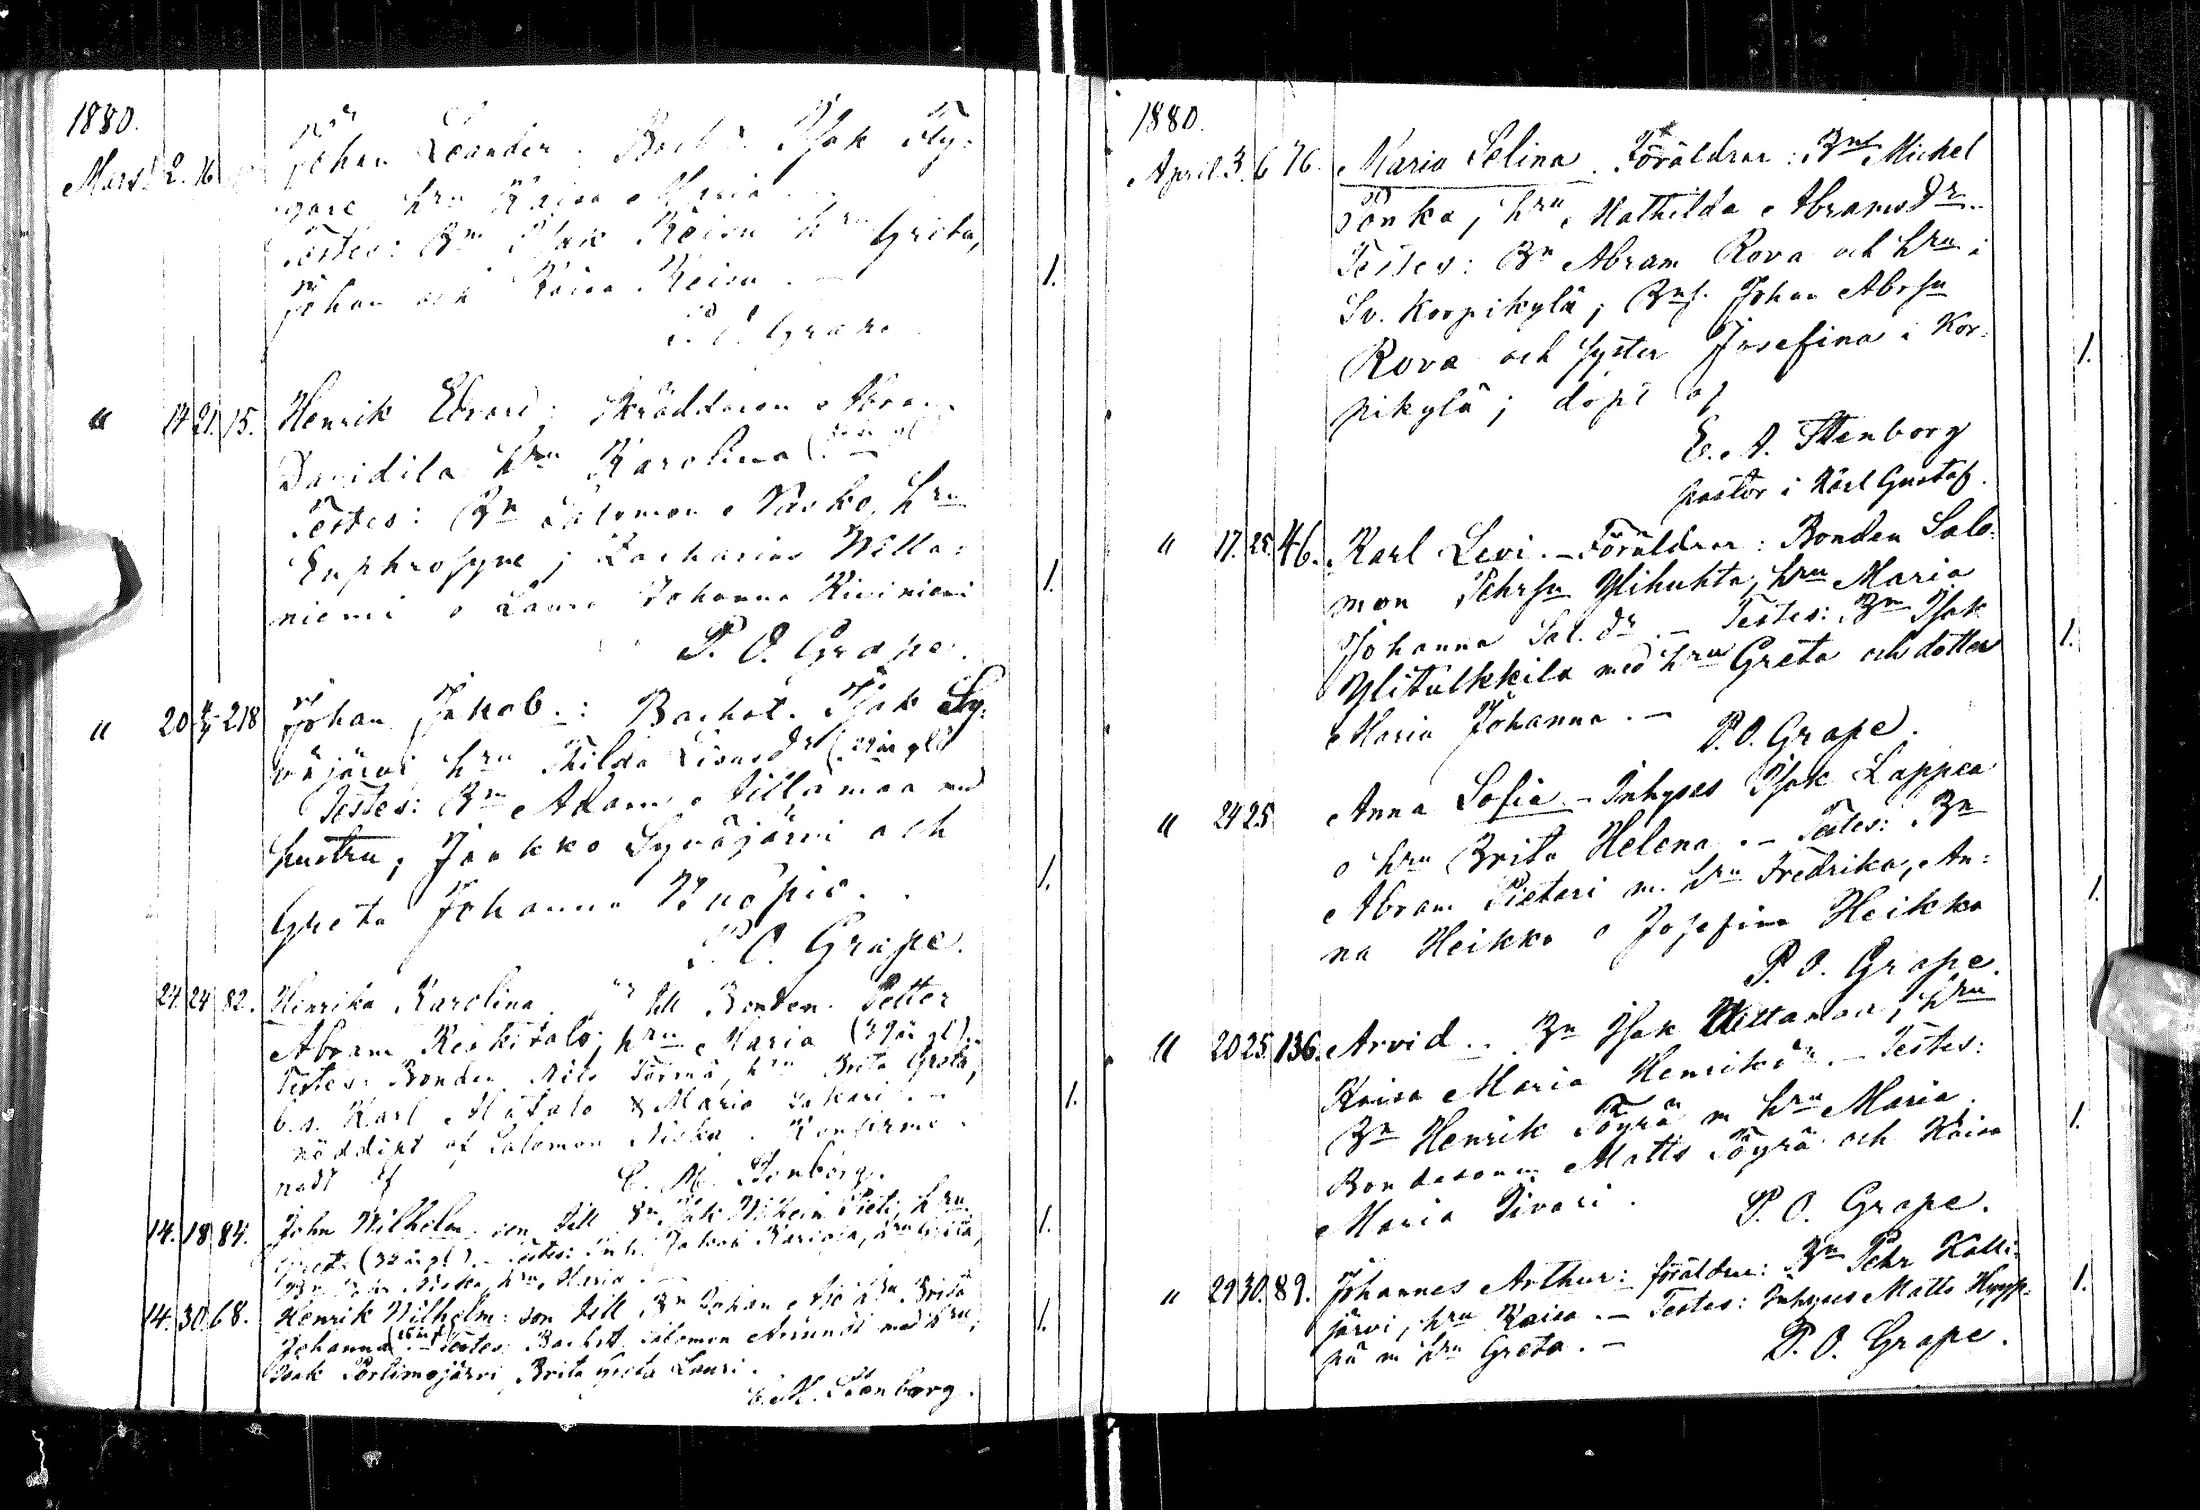 1880.
Mars 2. 16 Johan Leander. Isak Fly-
gare hru Kaisa Maria
Testes: Bn Isak Keisu hru Greta,
Johan och Kaisa Keisu. — 1.
P. O. Grape
" 14 21. 15. Henrik Edvard; Skräddaren Abram
Davidila hru Karolina
Testes: Bn Salomon Niska, hru
Euphrosyne; Zacharias Willa-
niemi o Johanna Kiviniemi 1.
P. O. Grape.
" 20 218 Johan Jakob.: Bachst. Isak Sy-
väjärvi hru Tilda
Testes: Bn Adam Alillamaa med
hustru; Jaakko Syväjärvi och
Greta Johanna Kuoppio. 1.
P. O. Grape.
24. 24 82. Henrika Karolina till Bonden Petter
Abram Keskitalo; hru Maria (39 år gl).
Testes: Bonden Nils Törmä, hru Brita Greta,
b.s. Karl Mätalo & Maria 1.
nöddöpt af Salomon Niska. Konfirme-
radt af E. M. Stenborg.
14. 18 84. John Wilhelm son till Bn Isak hru
Greta (32 år gl). — Testes: Inh. Jakob 1.
Niska, hru Maria. —
14. 30. 68. Henrik Wilhelm: son till Bn Johan hru Brita
Johanna Testes: Bachst. Salomon med hru, 1.
Isak Portimojärvi, Brita Greta Lauri.
E. M. Stenborg.
1880.
April 3. 6 76. Maria Selina. Föräldrar: Bns Michel
hru Mathilda Abramsdr.
Testes: Bn Abram Rova och hru i
Sv. Korpikylä; Bns. Johan Abrsn
Rova och syster Josefina i Kor-
pikylä; döpt af 1.
E. A. Stenborg
pastor i Karl Gustaf.
" 17. 25. 46. Karl Levi. — Föräldrar: Bonden Salo-
mon Pehrsn Ylihuhta, hru Maria
Johanna Sal. dr. — Testes: Bn Isak
Ylitulkkila med hru Greta och dotter 1.
Maria Johanna. — P. O. Grape.
" 24 25 Anna Sofia. — Inhyses Isak Lappea
o hru Brita Helena. — Testes: Bn
Abram Pietari m. hru Fredrika, An-
na Heikka o Josefina Heikka 1.
P. O. Grape.
" 20 25 136. Arvid. Bn Isak hru
Kaisa Maria Henriksdr. — Testes:
Bn Henrik Töyrä m hru Maria.
Bondesonen Matts Töyrä och Kaisa 1.
Maria P. O. Grape.
" 29 30. 89. Johannes Arthur: föräldrar: Bn Pehr Kalli-
järvi, hru Kaisa. — Testes: Inhyses Matts Hyyp- 1.
pä m hru Greta. — P. O. Grape.